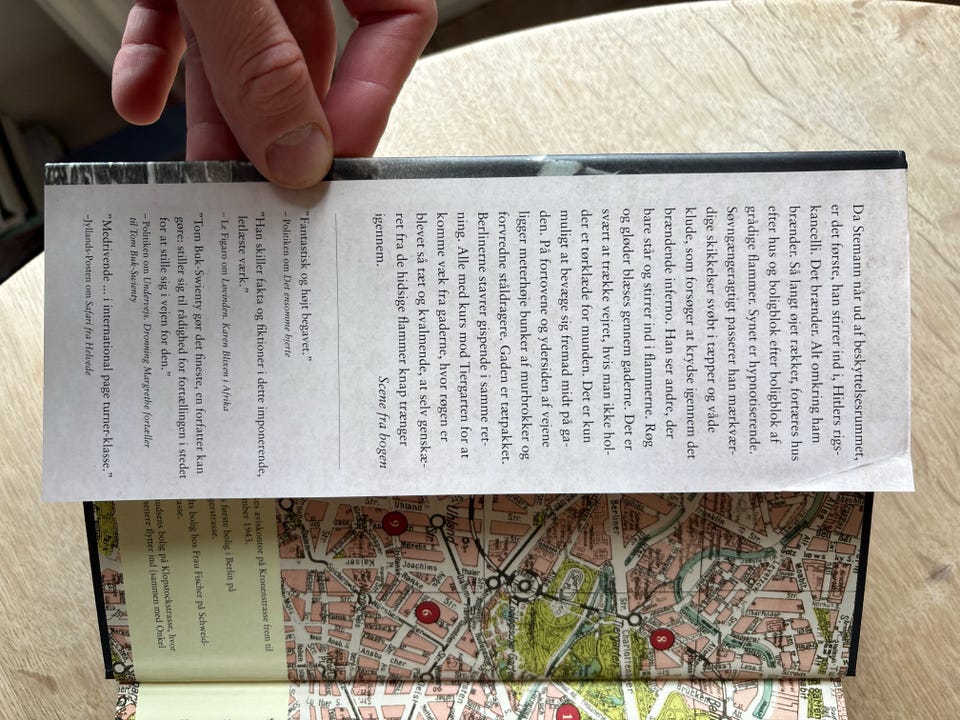 Da Seemann når ud af beskyttelsesrummet,
er det første, han stirrer ind i, Hitlers rigs-
kancelli. Det brænder. Alt omkring ham
brænder. Så langt øjet rækker, fortæres hus
efter hus og boligblok efter boligblok af
grådige flammer. Synet er hypnotiserende.
Søvngængeragtigt passerer han mærkvær-
dige skikkelser svøbt i tæpper og våde
klude, som forsøger at krydse igennem det
brændende inferno. Han ser andre, der
bare står og stirrer ind i flammerne. Røg
og gløder blæses gennem gaderne. Det er
svært at trække vejret, hvis man ikke hol-
der et tørklæde for munden. Det er kun
muligt at bevæge sig fremad midt på ga-
den. På fortovene og ydersiden af vejene
ligger meterhøje bunker af murbrokker og
forvredne ståldragere. Gaden er tætpakket.
Berlinerne stavrer gispende i samme ret-
ning. Alle med kurs mod Tiergarten for at
komme væk fra gaderne, hvor røgen er
blevet så tæt og kvalmende, at selv genskæ-
ret fra de hidsige flammer knap trænger
igennem.
Scene fra bogen
"Fantastisk og højt begavet."
– Politiken om Det ensomme hjerte
"Han skiller fakta og fiktioner i dette imponerende,
letlæste værk."
– Le Figaro om Løvinden. Karen Blixen i Afrika
"Tom Buk-Swienty gør det fineste, en forfatter kan
gøre: stiller sig til rådighed for fortællingen i stedet
for at stille sig i vejen for den."
– Politiken om Undervejs. Dronning Margrethe fortæller
til Tom Buk-Swienty
"Medrivende ... i international page turner-klasse."
–Jyllands-Posten om Safari fra Helvede
aviskontor på Kronenstrasse frem til
1943.
første bolig i Berlin på
bolig hos Frau Fischer på Schweid-
bolig på Klopstockstrasse, hvor
flytter ind (sammen med Onkel
Uhland
Str.
Joachims
Kaiser
Berliner
Str.
9
6
8
1